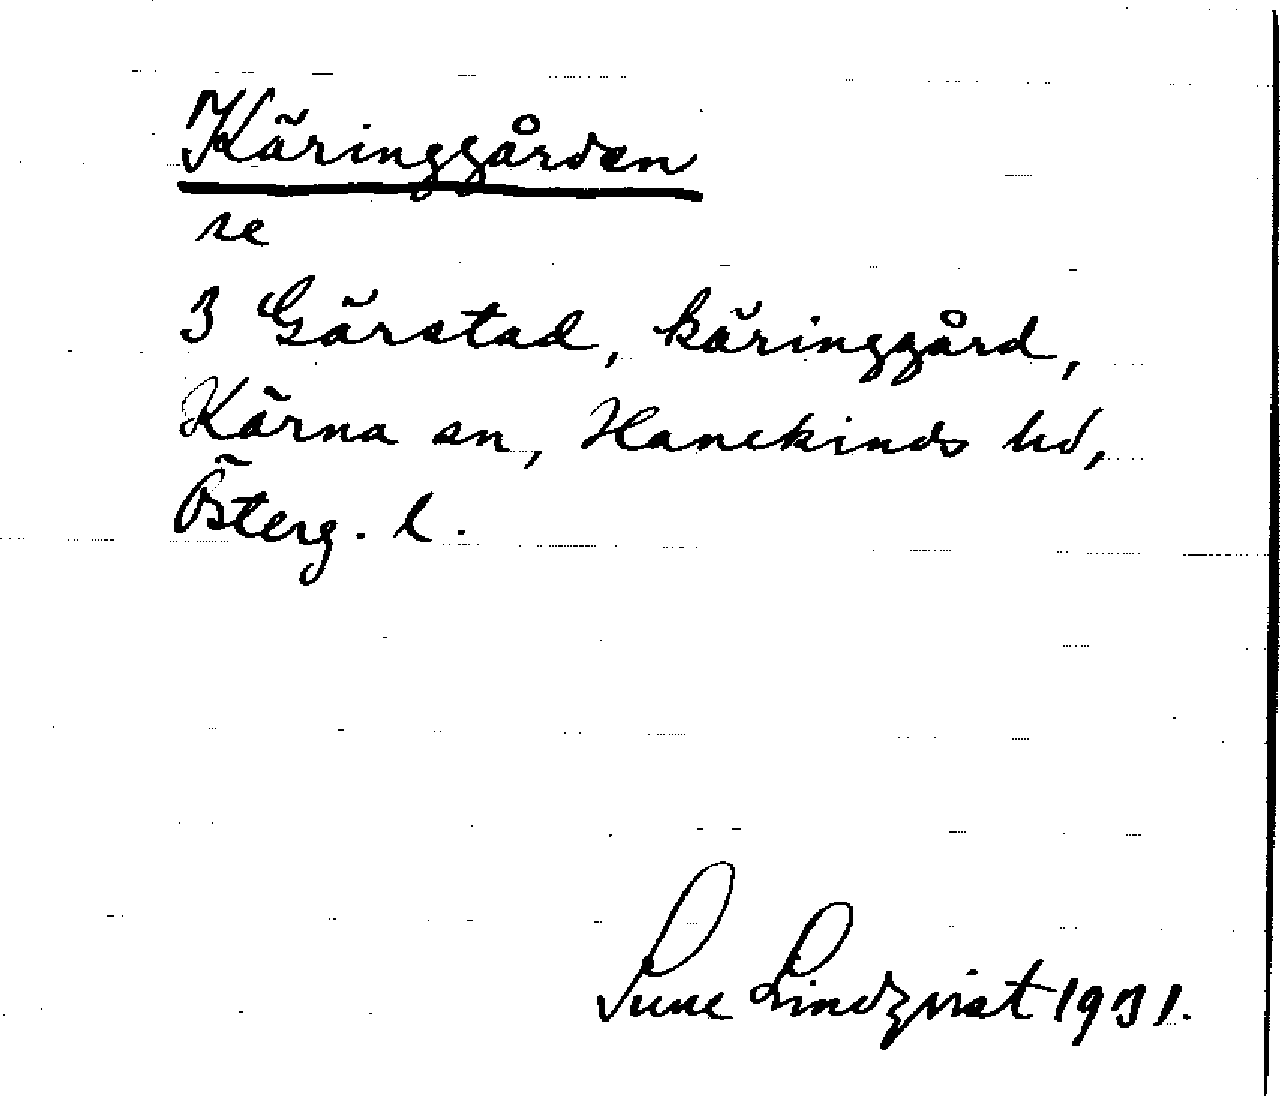 Käringgården
se
3 Gärstad, käringgård,
Kärna sn, Hanekinds hd,
Österg. l.
Sune Lindqvist 1931.